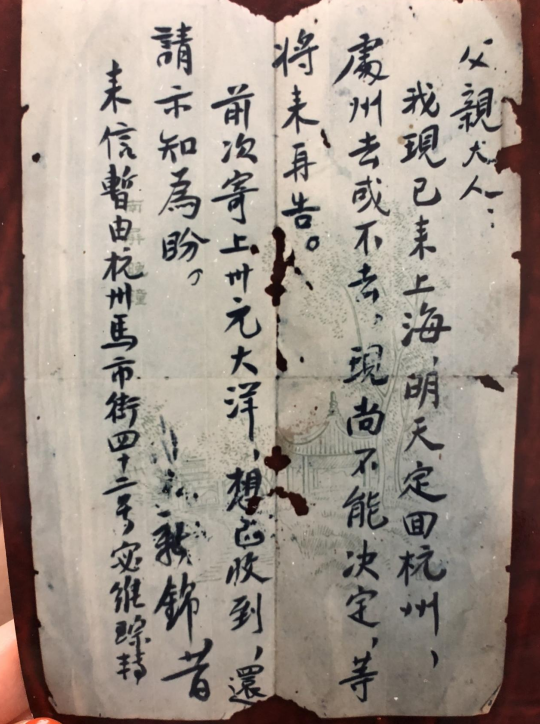 父親大人：
我現已来上海，明天定回杭州，
處州去或不去，現尚不能决定，等
将来再告。
前次寄上卅元大洋，想已收到，還
請示知為盼。
錦昔
来信暫由杭州馬市街四十二号宓維琮轉